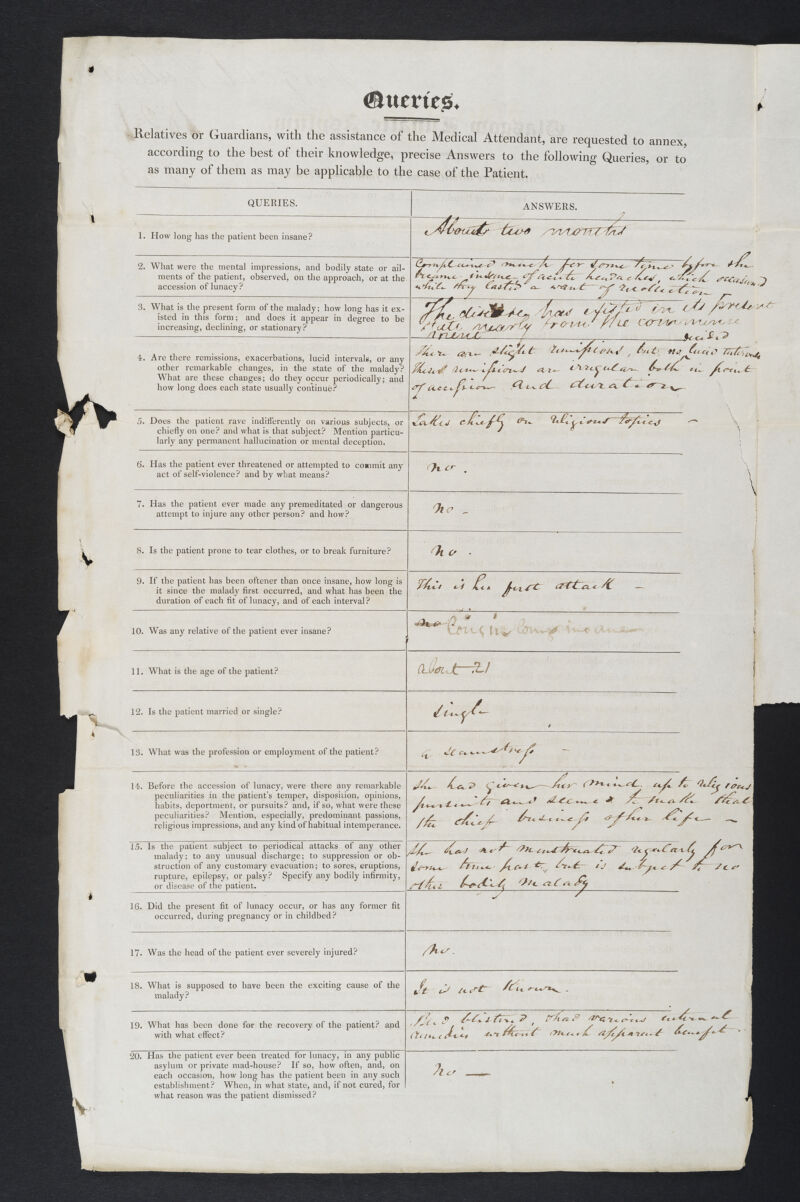 Queries.
Relatives or Guardians, with the assistance of the Medical Attendant, are requested to annex,
according to the best of their knowledge, precise Answers to the following Queries, or to
as many of them as may be applicable to the case of the Patient.
QUERIES.
ANSWERS.
1. How long has the patient been insane?
About two months
2. What were the mental impressions, and bodily state or ail-
ments of the patient, observed, on the approach, or at the
accession of lunacy?
Complained much for some time before she
became insane of acute headaches, which occasioned
while they lasted a want of recollection
3. What is the present form of the malady; how long has it ex-
isted in this form; and does it appear in degree to be
increasing, declining, or stationary?
The disease has existed in its present
state nearly from the commence
ment
4. Are there remissions, exacerbations, lucid intervals, or any
other remarkable changes, in the state of the malady?
What are these changes; do they occur periodically; and
how long does each state usually continue?
decided
There are slight remissions, but no lucid intervals
These remissions are irregular both in point
of accession and duration
5. Does the patient rave indifferently on various subjects, or
chiefly on one? and what is that subject? Mention particu-
larly any permanent hallucination or mental deception.
Talks chiefly on religious topics –
6. Has the patient ever threatened or attempted to commit any
act of self-violence? and by what means?
no .
7. Has the patient ever made any premeditated or dangerous
attempt to injure any other person? and how?
No –
8. Is the patient prone to tear clothes, or to break furniture?
No .
9. If the patient has been oftener than once insane, how long is
it since the malady first occurred, and what has been the
duration of each fit of lunacy, and of each interval?
This is her first attack –
10. Was any relative of the patient ever insane?
no insane
11. What is the age of the patient?
about 21
12. Is the patient married or single?
Single
13. What was the profession or employment of the patient?
a seamstress –
14. Before the accession of lunacy, were there any remarkable
peculiarities in the patient's temper, disposition, opinions,
habits, deportment, or pursuits? and, if so, what were these
peculiarities? Mention, especially, predominant passions,
religious impressions, and any kind of habitual intemperance.
She had given her mind up to religious
pursuits and seemed to make that
the chief business of her life –
15. Is the patient subject to periodical attacks of any other
malady; to any unusual discharge; to suppression or ob-
struction of any customary evacuation; to sores, eruptions,
rupture, epilepsy, or palsy? Specify any bodily infirmity,
or disease of the patient.
She has not menstruated regularly for
some time past, but is subject to no
other bodily malady
16. Did the present fit of lunacy occur, or has any former fit
occurred, during pregnancy or in childbed?
17. Was the head of the patient ever severely injured?
No.
18. What is supposed to have been the exciting cause of the
malady?
It is not known.
19. What has been done for the recovery of the patient? and
with what effect?
blistered, & had various internal
remedies without much apparent benefit.
20. Has the patient ever been treated for lunacy, in any public
asylum or private mad-house? If so, how often, and, on
each occasion, how long has the patient been in any such
establishment? When, in what state, and, if not cured, for
what reason was the patient dismissed?
No —